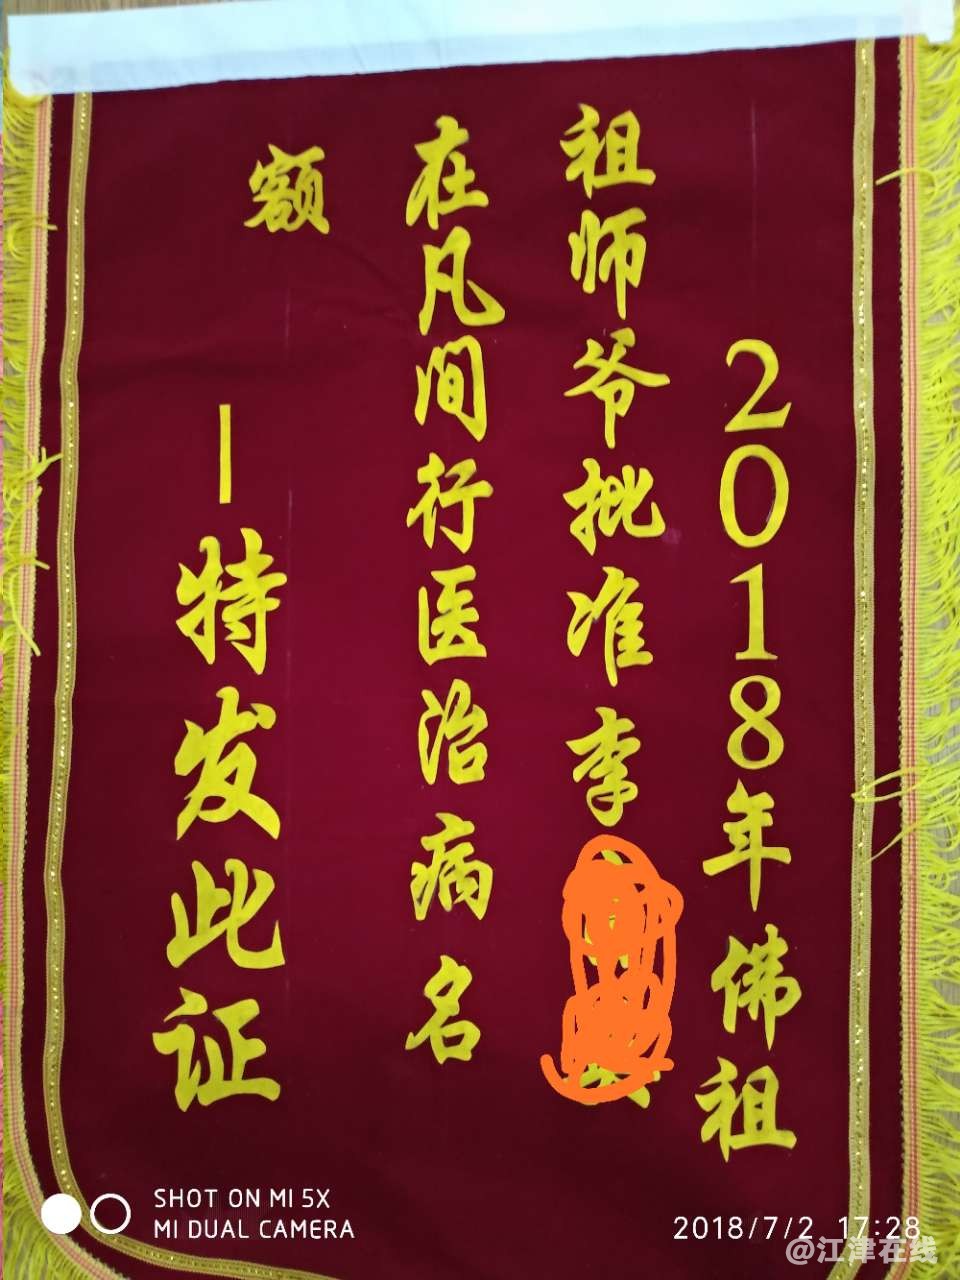 2018年佛祖
祖师爷批准李
在凡间行医治病名
额
—特发此证
SHOT ON MI 5X
MI DUAL CAMERA
2018/7/2 17:28
@江津在线